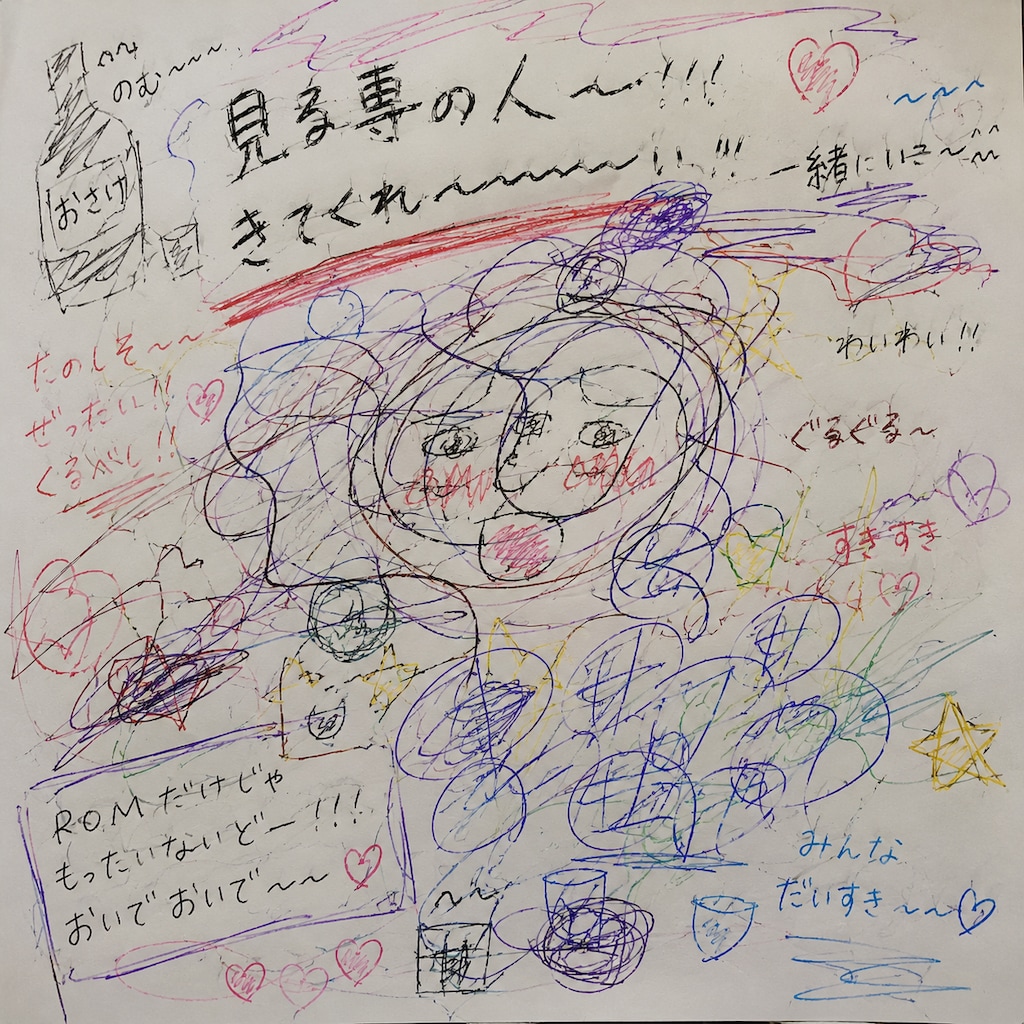 のむ〜〜〜
見る専の人〜!!!
きてくれ〜〜〜〜い!!!
おさけ
〜〜〜
たのしそ〜〜
ぜったい!!
わいわい!!
ぐるぐる〜
すきすき
ROMだけじゃ
もったいないどー!!!
おいでおいで〜〜
みんな
だいすき〜〜